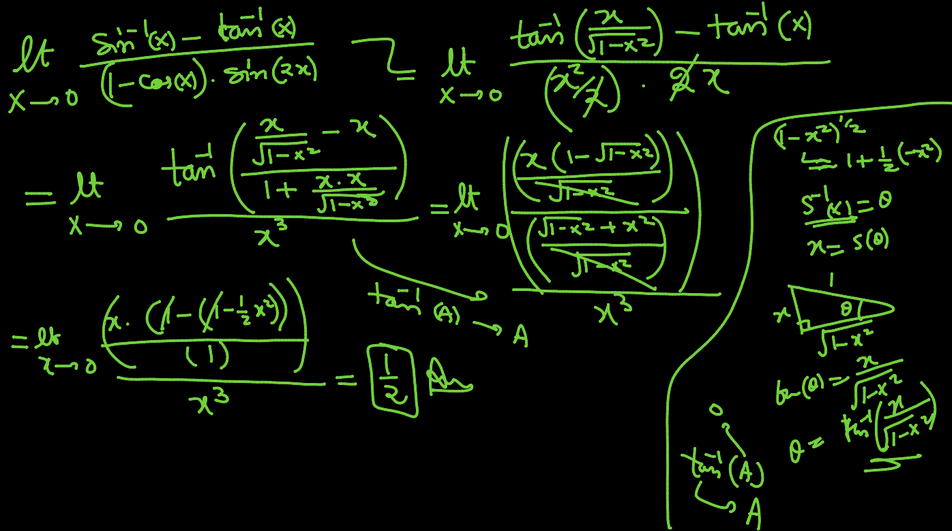 lt x→0 (sin⁻¹(x) − tan⁻¹(x)) / ((1−cos(x)) · sin(2x)) = lt x→0 (tan⁻¹(x/√(1−x²)) − tan⁻¹(x)) / ((x²/2) · 2x)
= lt x→0 tan⁻¹((x/√(1−x²) − x) / (1 + x.x/√(1−x²))) / x³ = lt x→0 ((x(1−√(1−x²))/√(1−x²)) / ((√(1−x²) + x²)/√(1−x²))) / x³
tan⁻¹(A) → A
= lt x→0 (x.(1−(1−½x²)) / (1)) / x³ = 1/2 Ans
(1−x²)^1/2
↳ 1+½(−x²)
s⁻¹(x) = θ
x = s(θ)
1
x θ
√(1−x²)
tan(θ) = x/√(1−x²)
θ = tan⁻¹(x/√(1−x²))
0
tan⁻¹(A)
→ A